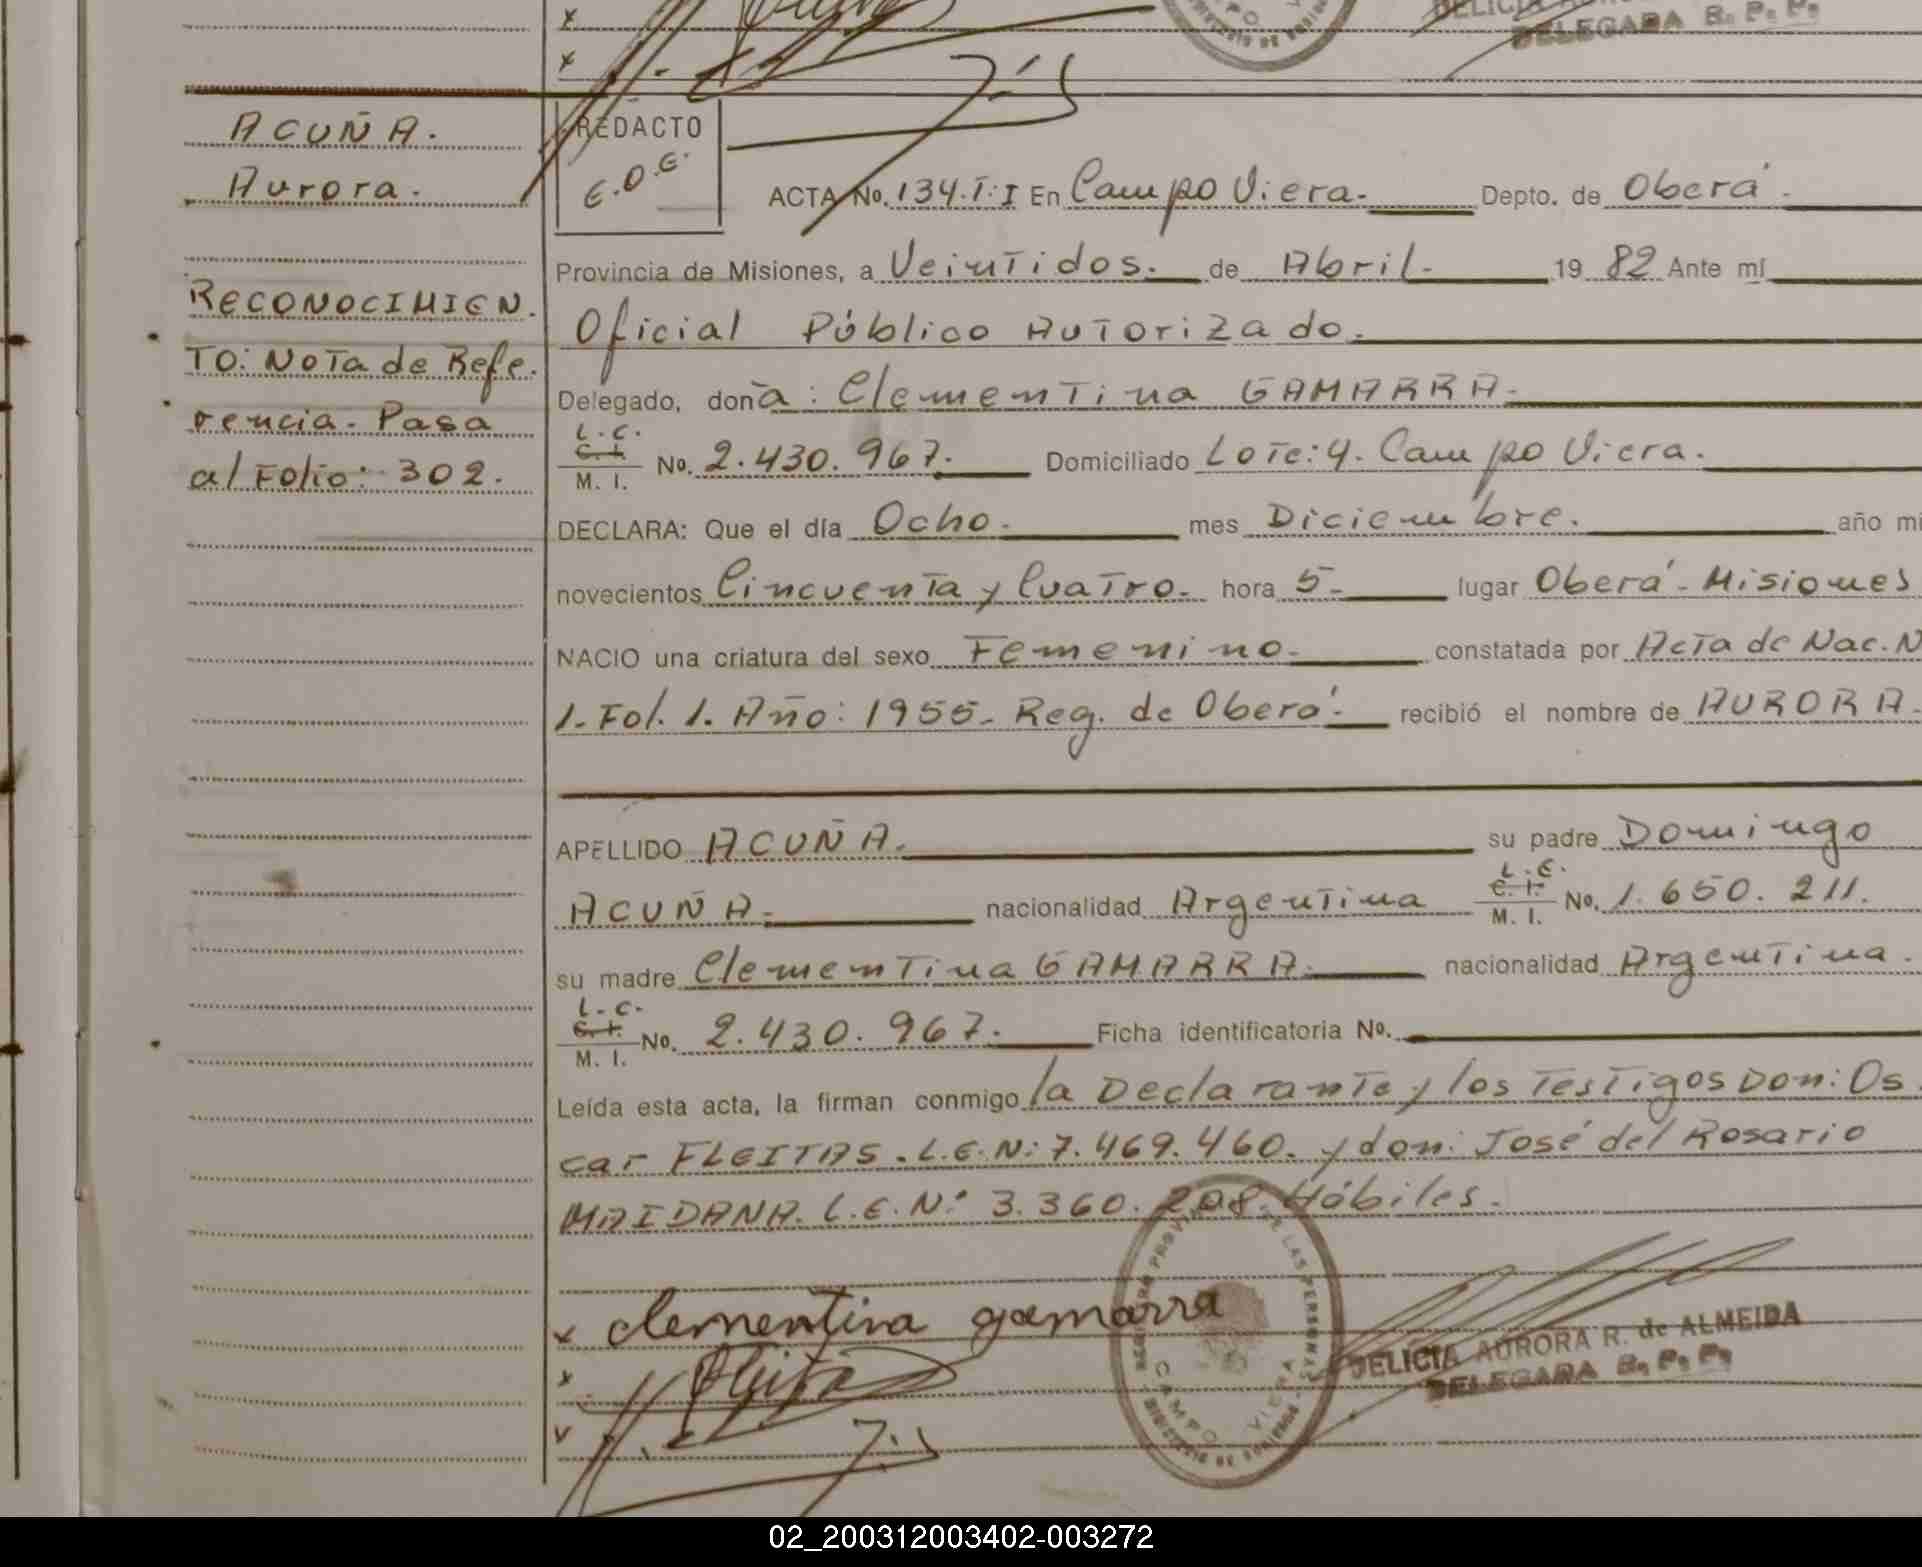 DELEGADA B. P. P.
ACUÑA.
Aurora.
RECONOCIMIEN.
TO: NOTA de Refe.
rencia. Pasa
al Folio: 302.
REDACTO
E.O.E.
ACTA No. 134.T:I En Campo Viera. Depto. de Oberá.
Provincia de Misiones, a Veintidos. de Abril. 19 82 Ante mí
Oficial Público Autorizado.
Delegado, doña: Clementina GAMARRA.
L.C.
C. I.
M. I. No. 2.430.967. Domiciliado Lote: 4. Campo Viera.
DECLARA: Que el día Ocho. mes Diciembre. año mi
novecientos Cincuenta y Cuatro. hora 5. lugar Oberá - Misiones
NACIO una criatura del sexo Femenino. constatada por Acta de Nac. N
1. Fol. 1. Año: 1955. Reg. de Oberá. recibió el nombre de AURORA.
APELLIDO ACUÑA. su padre Domingo
ACUÑA. nacionalidad Argentina L.E. C. I. M. I. No. 1.650.211.
su madre Clementina GAMARRA. nacionalidad Argentina.
L.C.
C. I.
M. I. No. 2.430.967. Ficha identificatoria No.
Leída esta acta, la firman conmigo la Declarante y los Testigos Don: Os.
car FLEITAS. L.E.N: 7.469.460. y don: José del Rosario
MAIDANA. L.E.N° 3.360.208. Hábiles.
clementina gamarra
CAMPO VIERA
DELICIA AURORA R. de ALMEIDA
DELEGADA B. P. P.
02_200312003402-003272